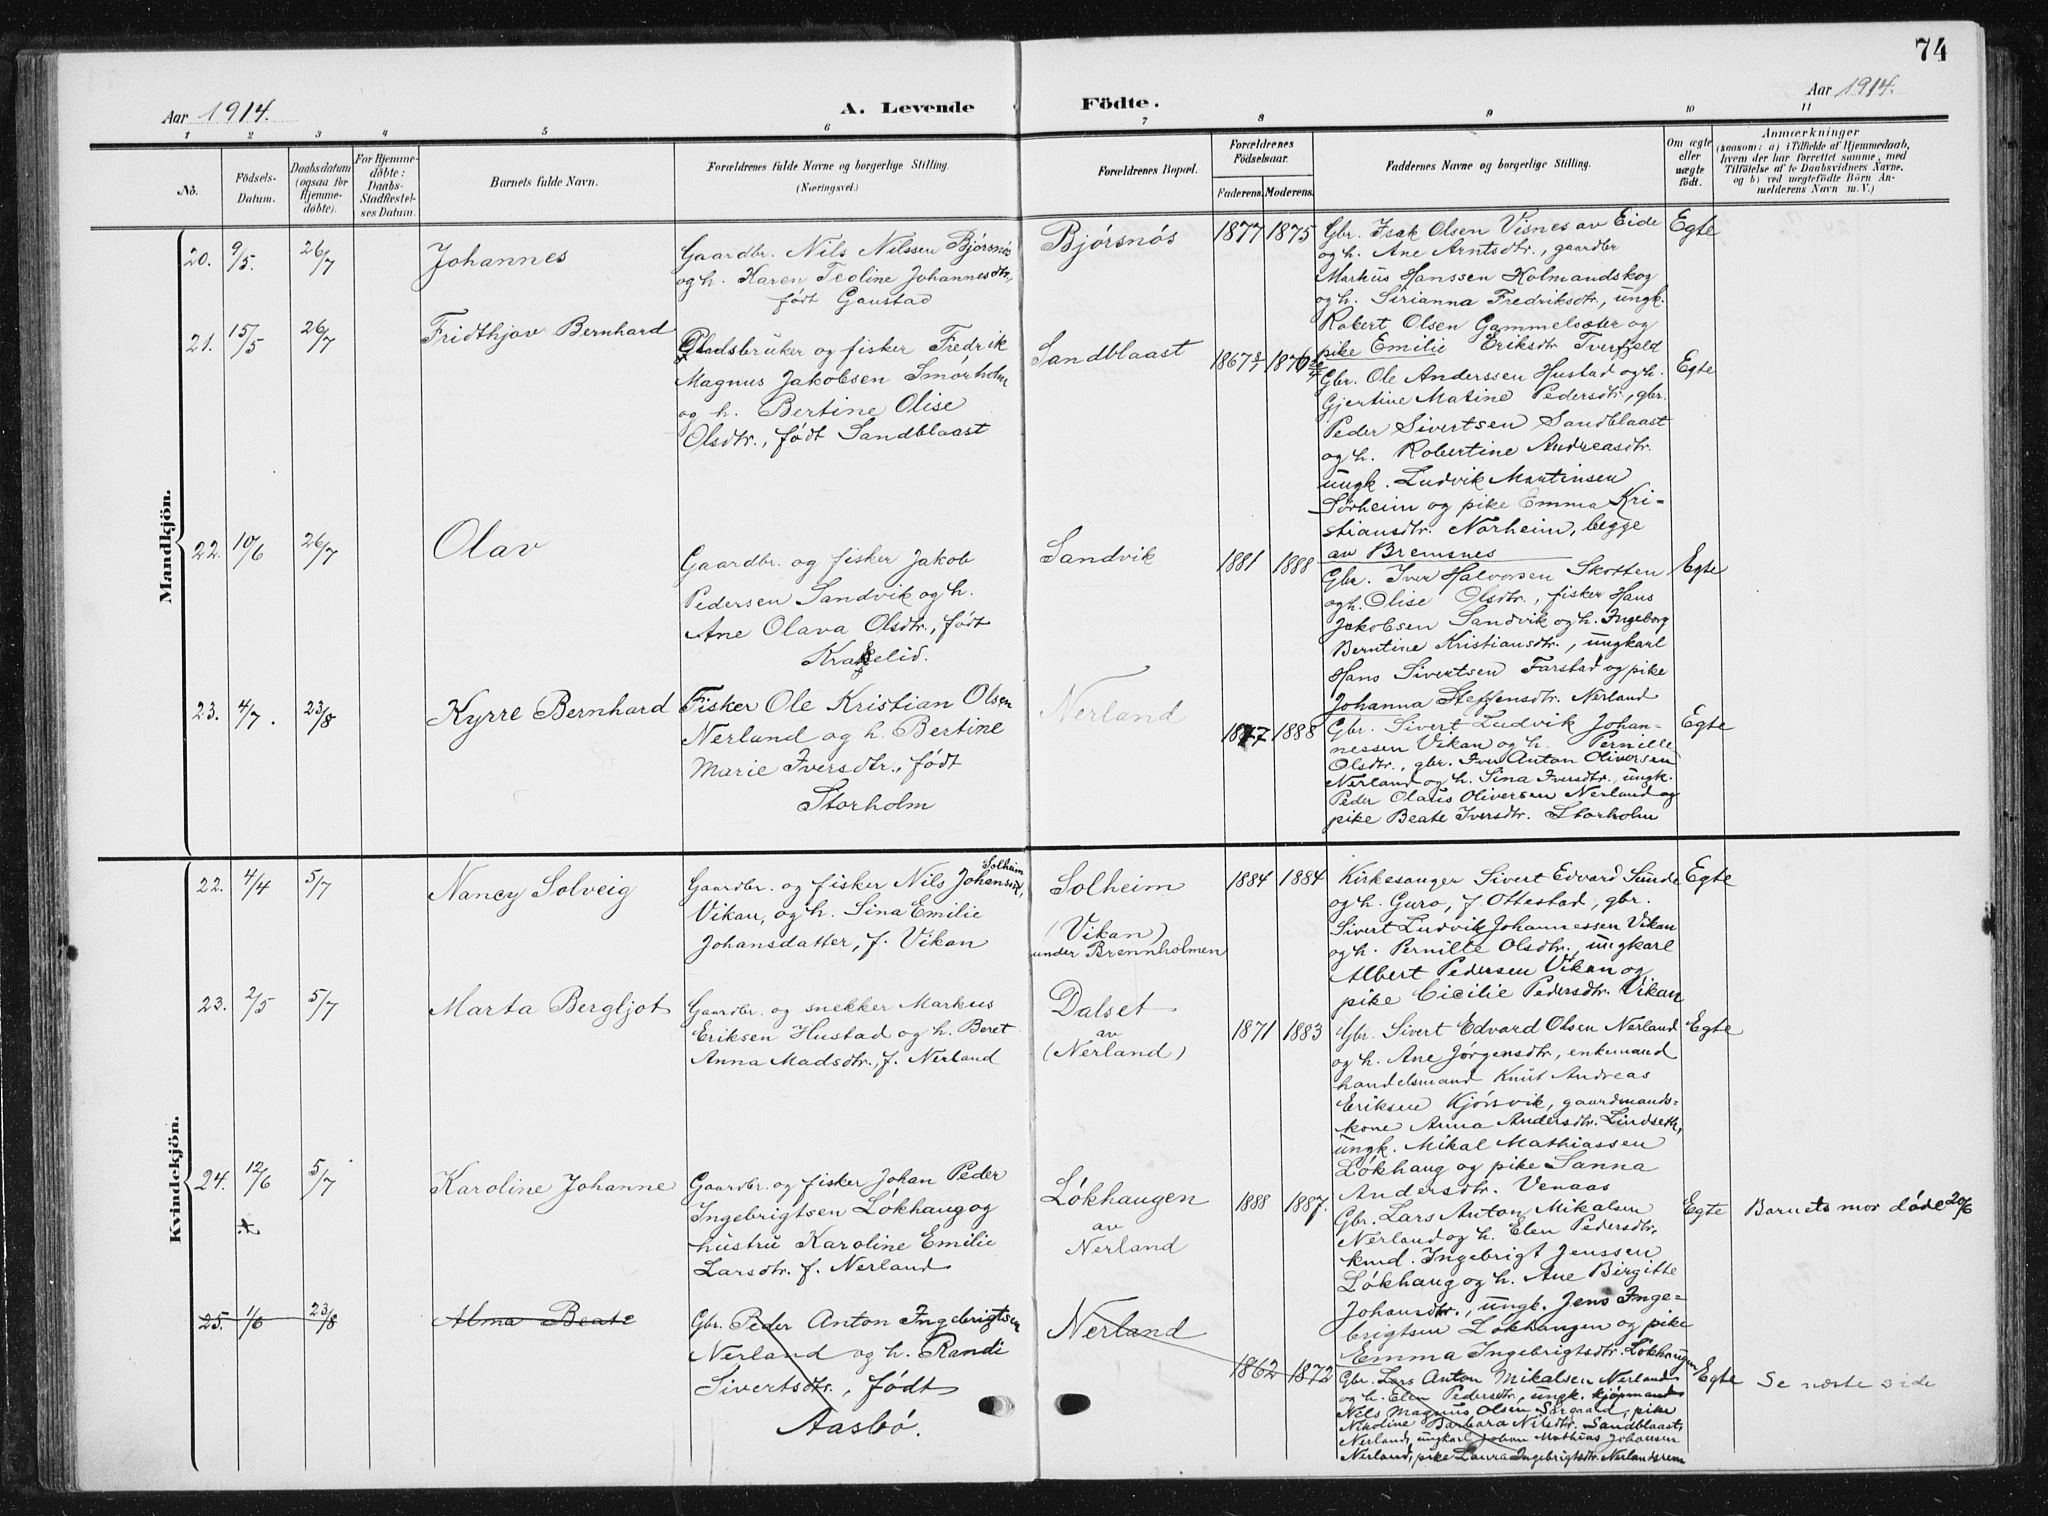 74
Aar 1914.
A. Levende Födte.
Aar 1914.
1 2 3 4 5 6 7 8 9 10 11
No.
Födsels-
Datum.
Daabsdatum
(ogsaa for
Hjemme-
döbte).
For Hjemme-
döbte:
Daabs-
Stadfæstel-
ses Datum.
Barnets fulde Navn.
Forældrenes fulde Navne og borgerlige Stilling.
(Næringsvei.)
Forældrenes Bopæl.
Forældrenes
Födselsaar.
Faderens. Moderens.
Faddernes Navne og borgerlige Stilling.
Om ægte
eller
uægte
födt.
Anmærkninger
(saasom: a) i Tilfælde af Hjemmedaab,
hvem der har forrettet samme, med
Tilföielse af to Daabsvidners Navne,
og b) ved uægtefödte Börn An-
melderens Navn m. V.)
Mandkjön.
20. 9/5. 26/7
Johannes
Gaardbr. Nils Nilssen Bjørsnøs
og h. Karen Teoline Johannesdtr.,
født Gaustad
Bjørsnøs
1877 1875
Gbr. Isak Olsen Visnes av Eide
og h. Ane Arntsdtr., gaardbr
Markus Hanssen Kolmandskog
og h. Sirianna Fredriksdtr., ungk.
Robert Olsen Gammelsæter og
pike Emilie Eriksdtr Tverfjeld
Egte
21. 15/5 26/7
Fridthjov Bernhard
Pladsbruker og fisker Fredrik
Magnus Jakobsen Smorholm
og h. Bertine Olise
Olsdtr., født Sandblaast
Sandblaast
1867 1876
Gbr. Ole Anderssen Hustad og h.
Gjertine Matine Pedersdtr., gbr.
Peder Sivertsen Sandblaast
og h. Robertine Andreasdtr.
ungk. Ludvik Martinsen
Sørheim og pike Emma Kri-
stiansdtr. Norheim, begge
av Bremsnes
Egte
22. 10/6 26/7
Olav
Gaardbr. og fisker Jakob
Pedersen Sandvik og h.
Ane Olava Olsdtr., født
Krakelid.
Sandvik
1881 1888
Gbr. Iver Halvorsen Skotten
og h. Olise Olsdtr., fisker Hans
Jakobsen Sandvik og h. Ingeborg
Berntine Kristiansdtr., ungkarl
Hans Sivertsen Farstad og pike
Johanna Steffensdtr. Nerland
Egte
23. 4/7. 23/8
Kyrre Bernhard
Fisker Ole Kristian Olsen
Nerland og h. Bertine
Marie Iversdtr., født
Storholm
Nerland
1877 1888
Gbr. Sivert Ludvik Johan-
nessen Vikan og h. Pernille
Olsdtr., gbr. Iver Anton Oliversen
Nerland og h. Sina Iversdtr., ungk.
Peder Olaus Oliversen Nerland og
pike Beate Iversdtr. Storholm
Egte
Kvindekjön.
22. 4/4 5/7
Nancy Solveig
Solheim
Gaardbr. og fisker Nils Johansen,
Vikan, og h. Sina Emilie
Johansdatter, f. Vikan
Solheim
(Vikan)
under Brennholmen
1884 1884
Kirkesanger Sivert Edvard Sunde
og h. Guro, f. Ottestad, gbr.
Sivert Ludvik Johannessen Vikan
og h. Pernille Olsdtr., ungkarl
Albert Pedersen Vikan og
pike Cicilie Pedersdtr. Vikan
Egte
23. 2/5 5/7
Marta Bergljot
Gaardbr. og snekker Markus
Eriksen Hustad og h. Beret
Anna Madsdtr., f. Nerland
Dalset
av
(Nerland)
1871 1883
Gbr. Sivert Edvard Olsen Nerland
og h. Ane Jørgensdtr., enkemand
handelsmand Knut Andreas
Eriksen Kjørsvik, gaardmands-
kone Anna Andersdtr. Lindseth,
ungk. Mikal Mathiassen
Løkhaug og pike Sanna
Andersdtr. Venaas
Egte
24. 12/6 5/7
Karoline Johanne
Gaardbr. og fisker Johan Peder
Ingebrigtsen Løkhaug og
hustru Karoline Emilie
Larsdtr. f. Nerland
Løkhaugen
av
Nerland
1888 1887.
Gbr. Lars Anton Mikalsen
Nerland og h. Elen Pedersdtr,
kmd. Ingebrigt Jenssen
Løkhaug og h. Ane Birgitte
Johansdtr., ungk. Jens Inge-
brigtsen Løkhaugen og pike
Emma Ingebrigtsdtr. Løkhaugen
Egte
Barnets mor døde 20/6
25. 1/6 23/8
Alma Beate
Gbr. Peder Anton Ingebrigtsen
Nerland og h. Randi
Sivertsdtr., født
Aasbø.
Nerland
1862 1872
Gbr. Lars Anton Mikalsen Nerland
og h. Elen Pedersdtr, ungk. kjøpmand
Nils Magnus Olsen Sørgaard, pike
Nikoline Barbara Nilsdtr. Sandblaast,
Nerland, ungkarl Johan Mathias Johansen
Nerland, pike Laura Ingebrigtsdtr. Nerlandsrem
Egte
Se næste side